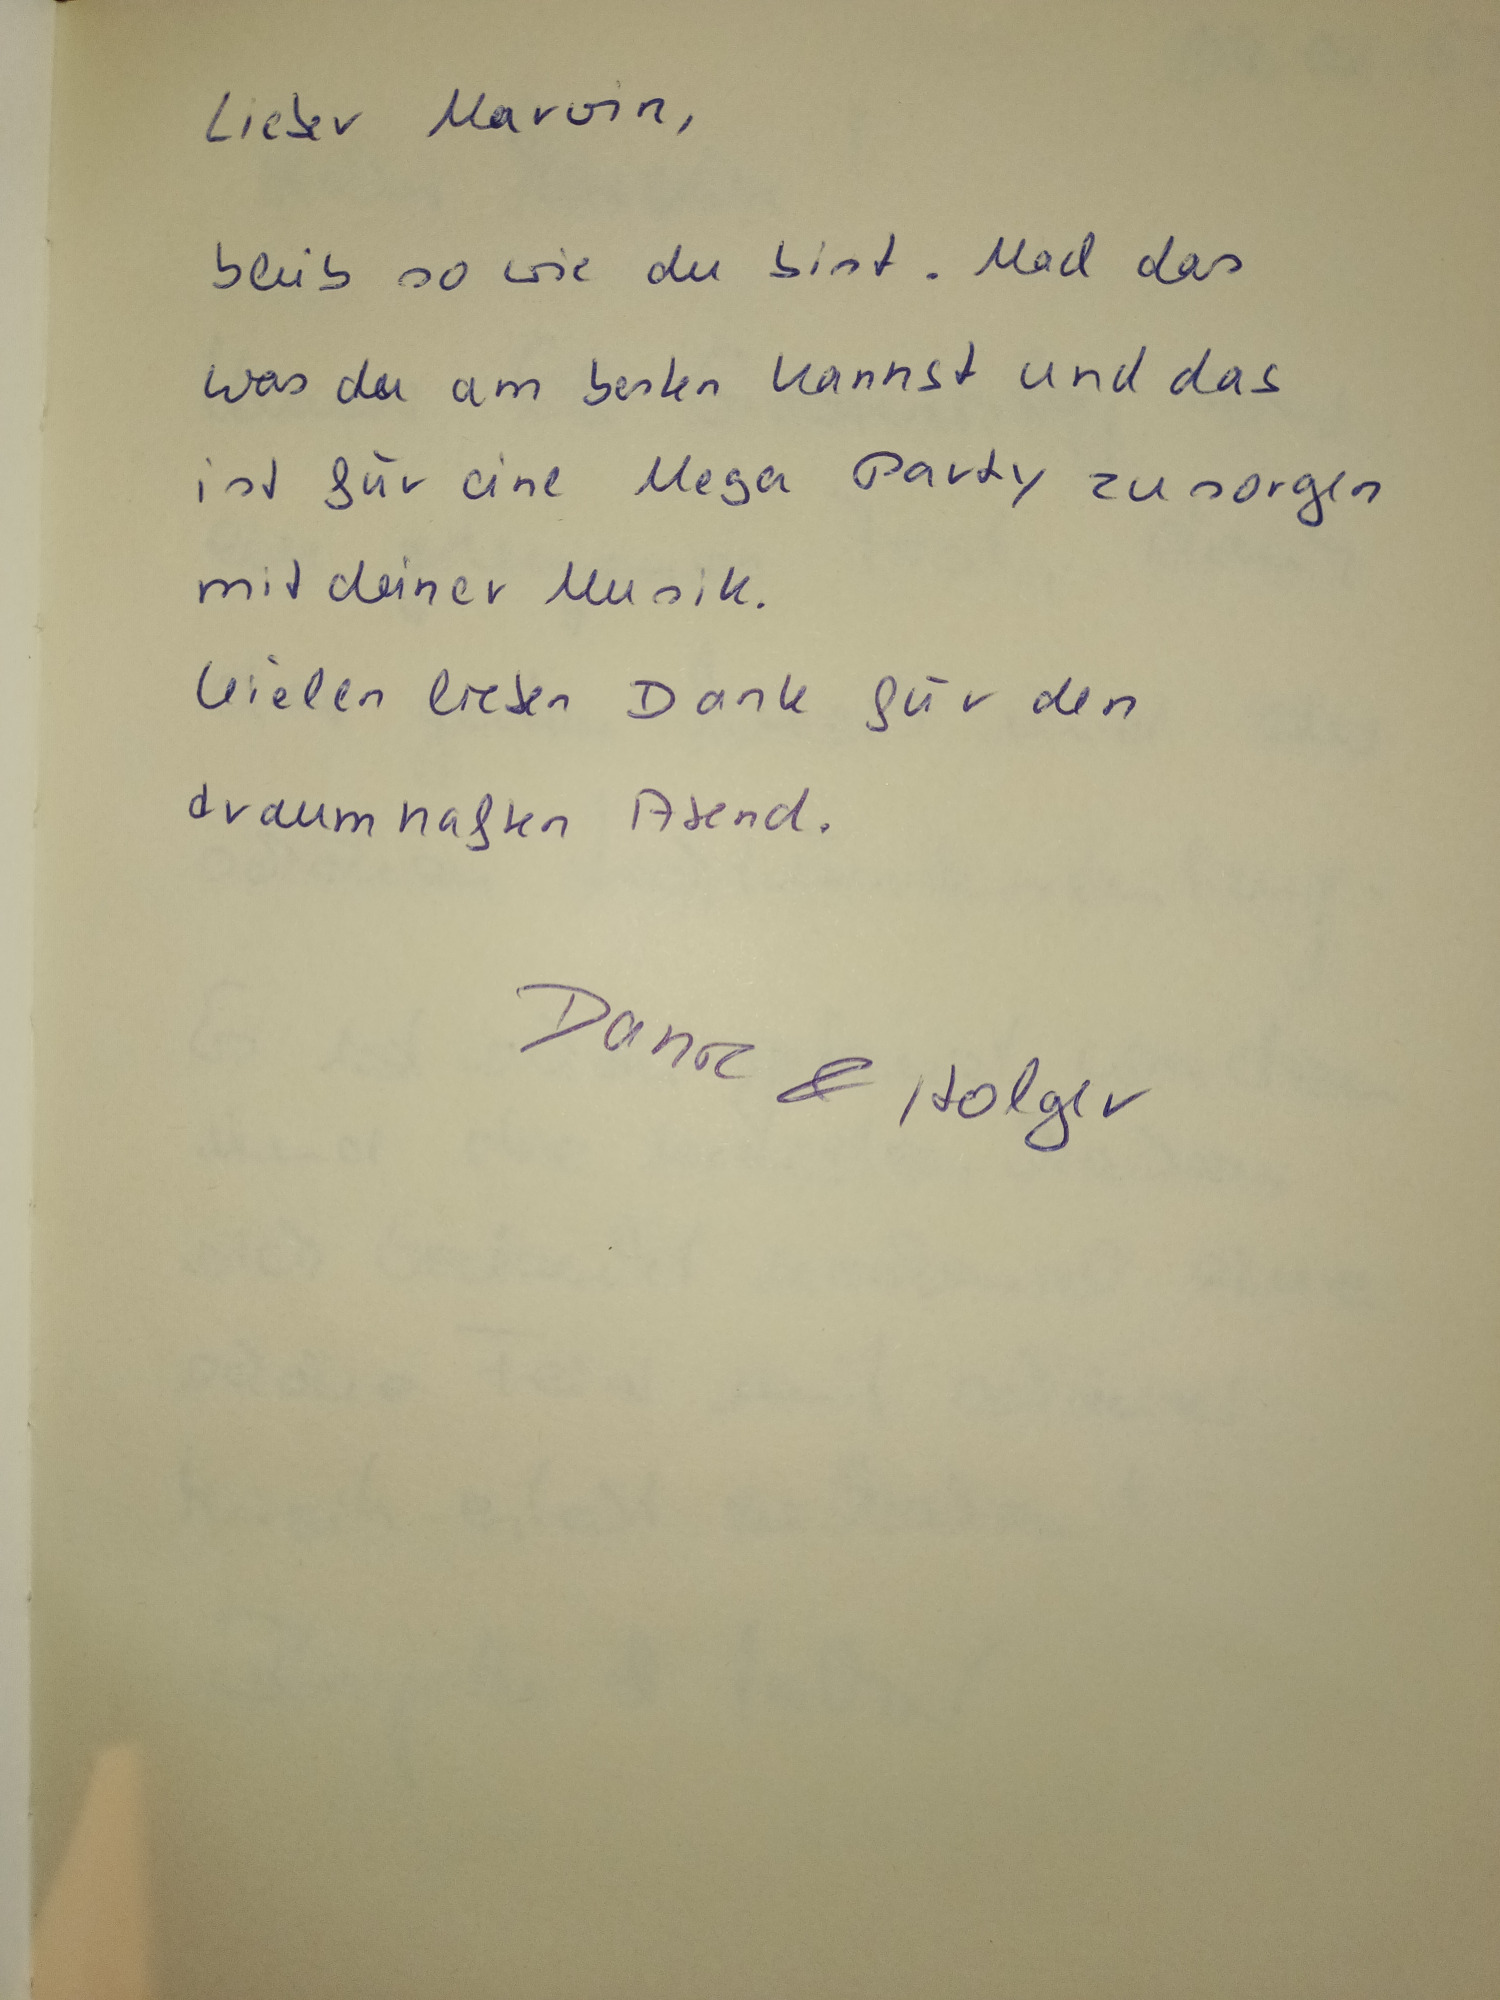 Lieber Marvin,
bleib so wie du bist. Mach das
was du am besten kannst und das
ist für eine Mega Party zu sorgen
mit deiner Musik.
Vielen lieben Dank für den
traumhaften Abend.
& Holger